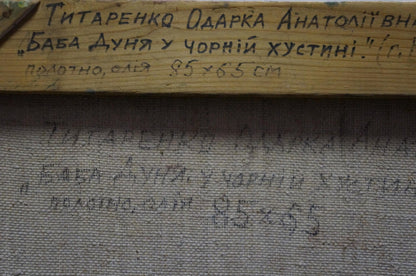 Титаренко Одарка Анатоліївн
„Баба Дуня у чорній хустині."
полотно, олія 85х65 см
Титаренко Одарка Ана
„Баба Дуня у чорній хустин
полотно, олія 85х65